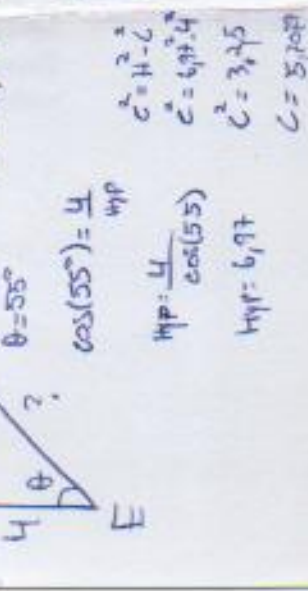 θ=55°
4
θ
?
E
cos(55°)=4/Hyp
Hyp=4/cos(55)
Hyp=6,97
c²=H²-C²
c²=6,97²-4²
C²=3,25
C=5,7087